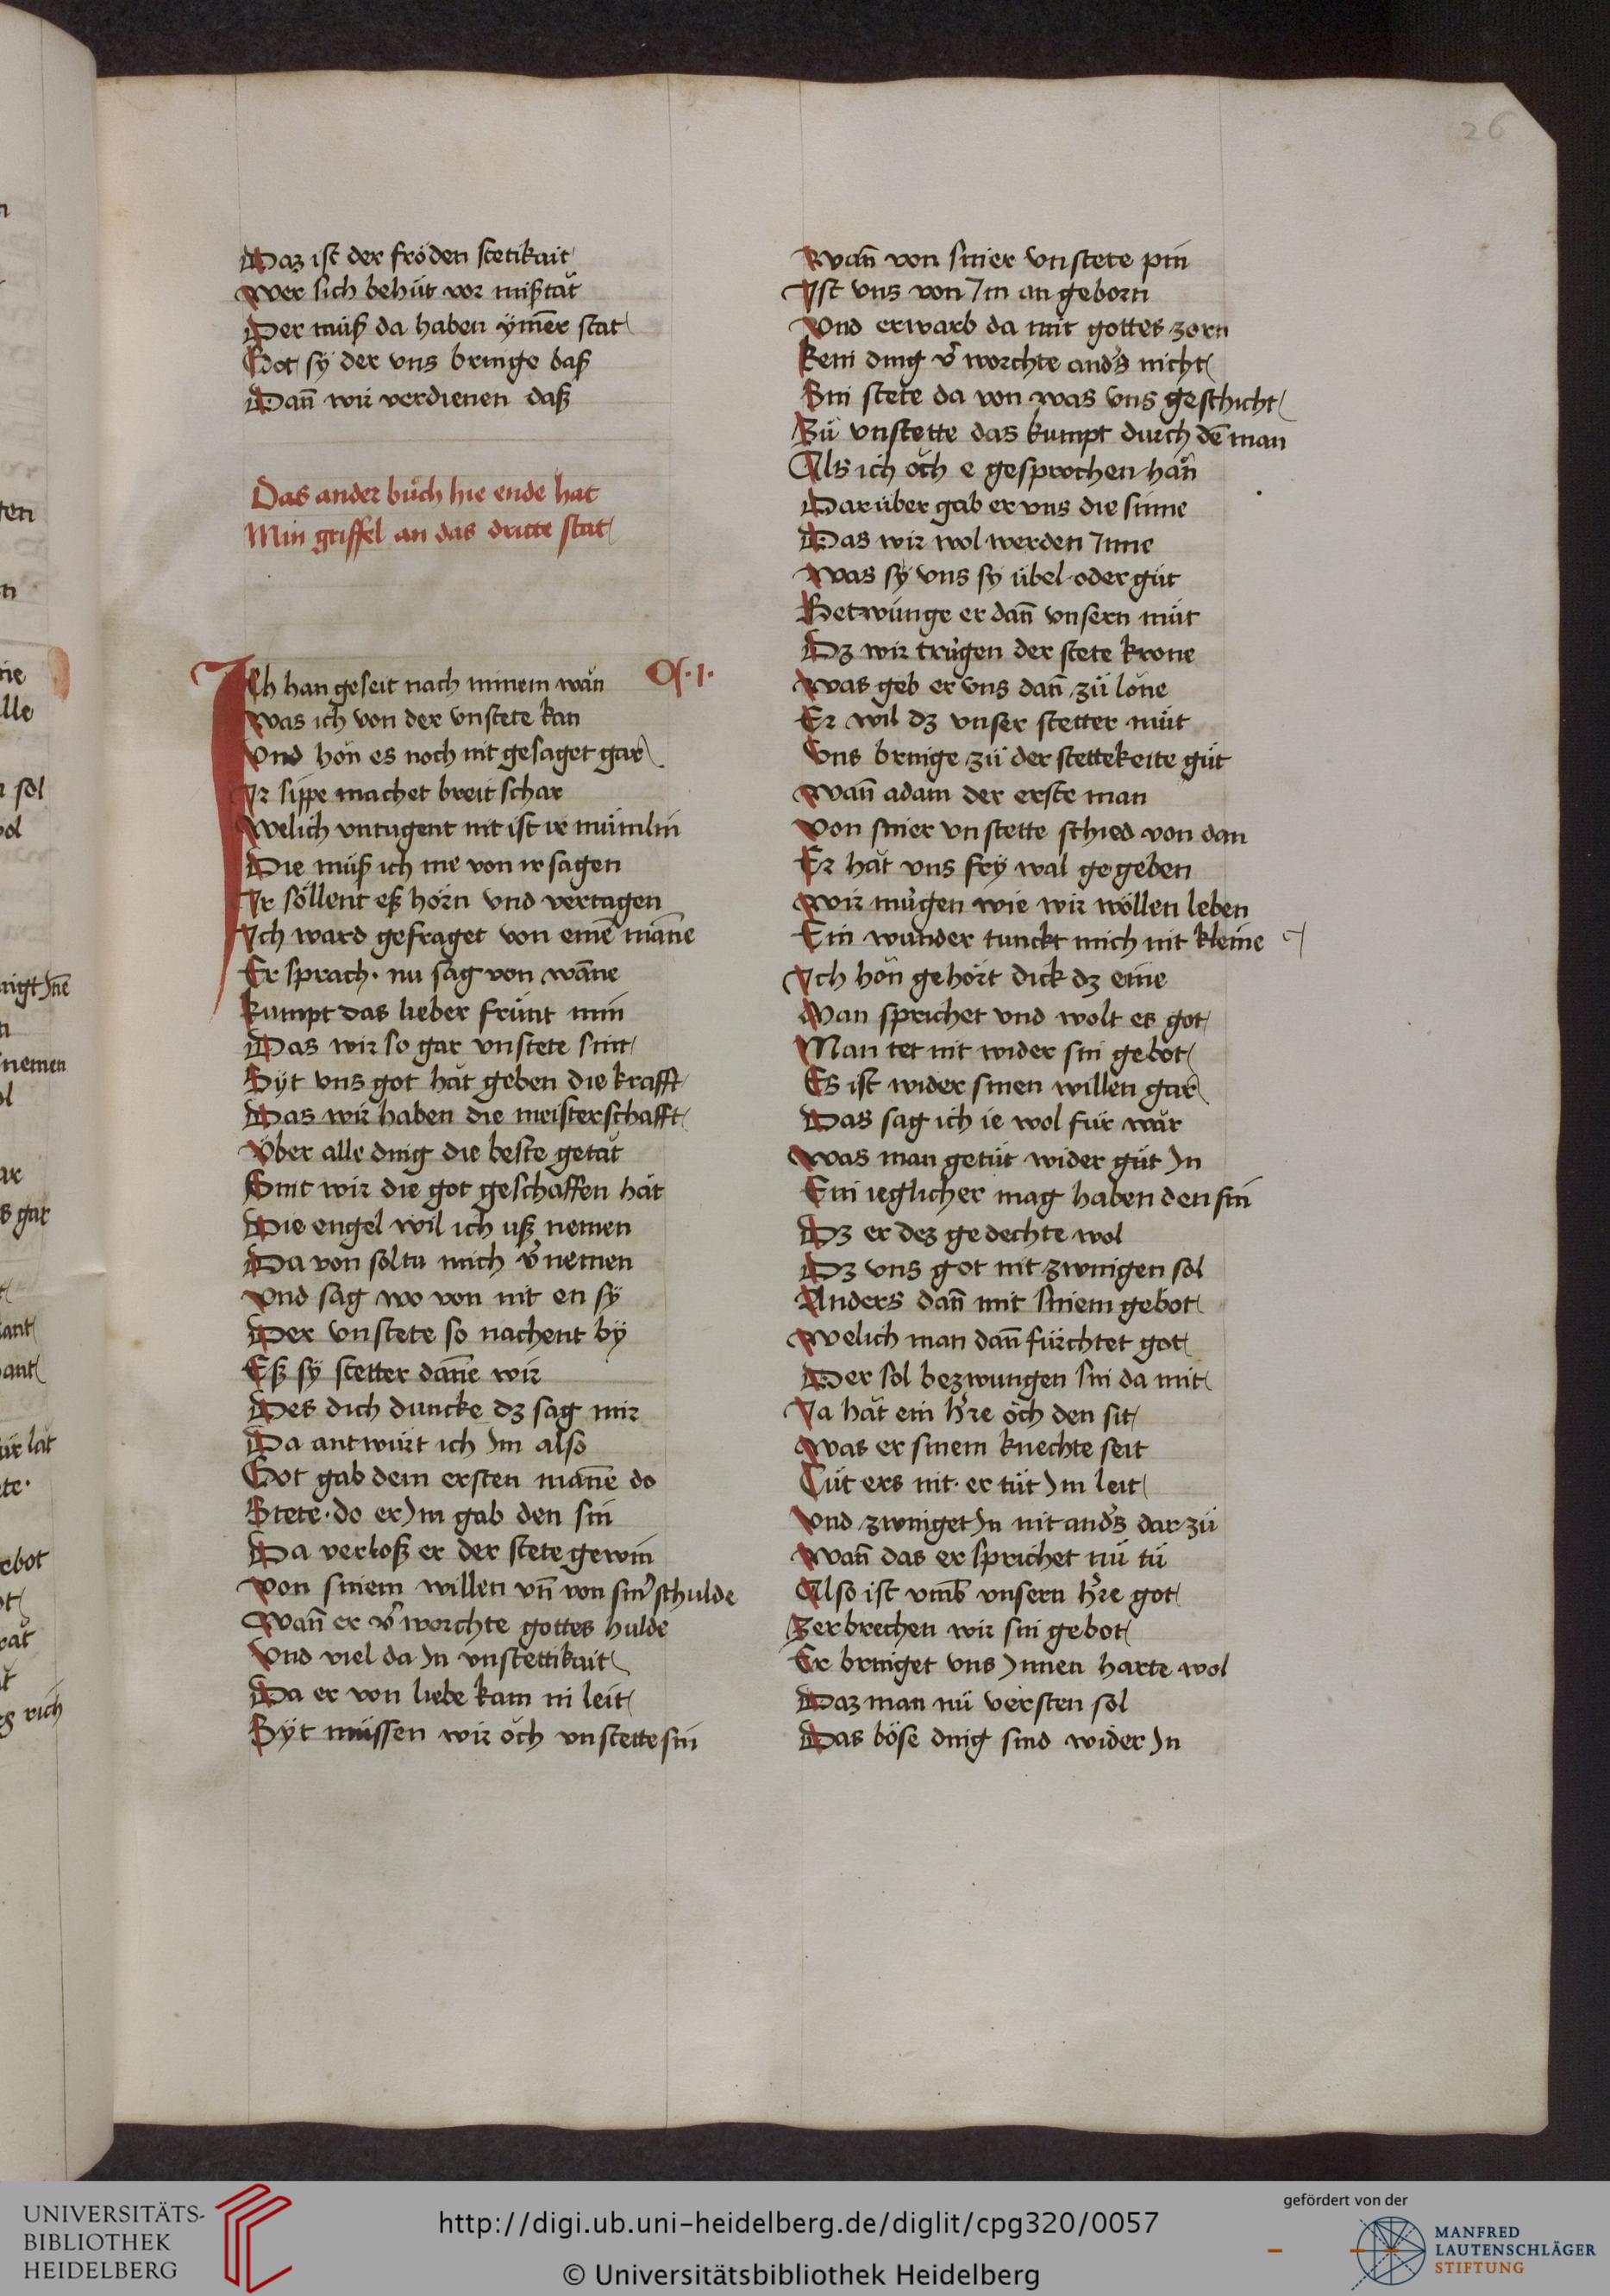 26
Daz ist der fröden stetikait
Wer sich behüt vor mißtăt
Der müß da haben ÿmer̄ stat
Got sÿ der vns bringe baß
Dan̄ wir verdienen daß
Das ander bůch hie ende hat
Min griffel an das dritte stat
Ich han geseit nach minem wăn
Was ich von der vnstete kan
Vnd hön es noch nit gesaget gar
Ir sippe machet breit schar
Welich vntugent nit ist ir mümlin
Die müß ich me von ir sagen
Ir söllent eß hörn vnd vertagen
Ich ward gefraget von einē man̄e
Er sprach · nu săg von wan̄e
kumpt das lieber frünt min
Das wir so gar vnstete sint
Sÿt vns got hăt geben die krafft
Das wir haben die meisterschafft
Vber alle ding die beste getăt
Sint wir die got geschaffen hăt
Die engel wil ich uß nemen
Da von soltu mich v̓nemen
Vnd săg wo von nit en sÿ
Der vnstete so nachent bÿ
Eß sÿ stetter dan̄e wir
Des dich duncke dz sag mir
Da antwürt ich Im also
Got gab dem ersten man̄e do
Stete · do er Im gab den sin
Da verloß er der stete gewin
Von sinem willen vn̄ von sin̓ schulde
Wan̄ er v̓worchte gottes hulde
Vnd viel da In vnstettikait
Da er von liebe kam in leit
Sÿt müssen wir ŏch vnstette sin
Cͣ · I ·
Wan̄ von siner vnstete pin
Ist vns von Im an geborn
Vnd erwarb da mit gottes zorn
kein ding v̓worchte and̓s nicht
Sin stete da von was vns geschicht
Zü vnstette das kumpt durch dē man
Als ich ŏch e gesprochen hăn
Darüber gab er vns die sinne
Das wir wol werden Inne
Was sÿ vns sÿ übel oder güt
Betwünge er dan̄ vnsern müt
Dz wir trügen der stete krone
Was geb er vns dan̄ zü lŏne
Er wil dz vnser stetter müt
Vns bringe zü der stettekeite güt
Wan̄ adam der erste man
Von siner vnstette schied von dan
Er hăt vns frÿ wal gegeben
Wir mügen wie wir wöllen leben
Ein wunder tunckt mich nit kleine
Ich hŏn gehört dick dz eine
Man sprichet vnd wolt es got
Man tet nit wider sin gebot
Es ist wider sinen willen gar
Das sag ich ie wol für wăr
Was man getüt wider güt In
Ein ieglicher mag haben den sin
Dz er dez gedechte wol
Dz vns got nit zwingen sol
Anders dan̄ mit sinem gebot
Welich man dan̄ fürchtet got
Der sol bezwungen sin da mit
Ia hăt ein h̓re ŏch den sit
Was er sinem knechte seit
Tüt ers nit · er tüt Im leit
Vnd zwinget In nit and̓s dar zü
Wan̄ das er sprichet nü tü
Also ist vmb̄ vnsern h̓re got
Zerbrechen wir sin gebot
Er bringet vns Innen harte wol
Daz man nü versten sol
Das böse ding sind wider In
UNIVERSITÄTS-
BIBLIOTHEK
HEIDELBERG
http://digi.ub.uni-heidelberg.de/diglit/cpg320/0057
© Universitätsbibliothek Heidelberg
gefördert von der
MANFRED
LAUTENSCHLÄGER
STIFTUNG